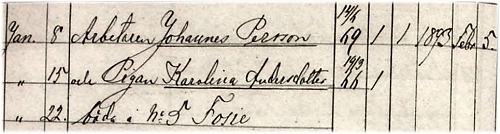 Jan. 8 Arbetaren Johannes Persson 14/2 69 1 1 1893 Febr 5.
" 15 och Pigan Karolina Andersdotter 19/3 66 1
" 22. båda i No 5 Fosie